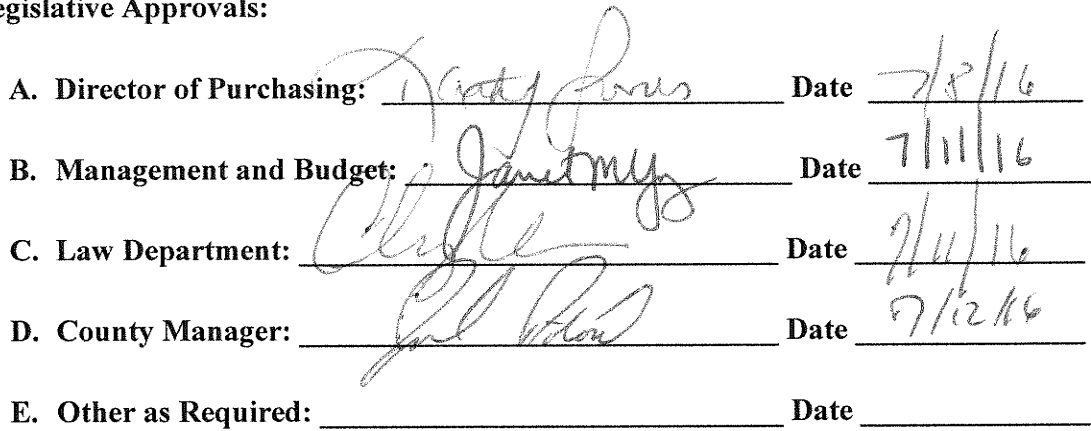 egislative Approvals:
A. Director of Purchasing: Date 7/8/16
B. Management and Budget: Janet Date 7/11/16
C. Law Department: Date 7/11/16
D. County Manager: Date 7/12/16
E. Other as Required: Date